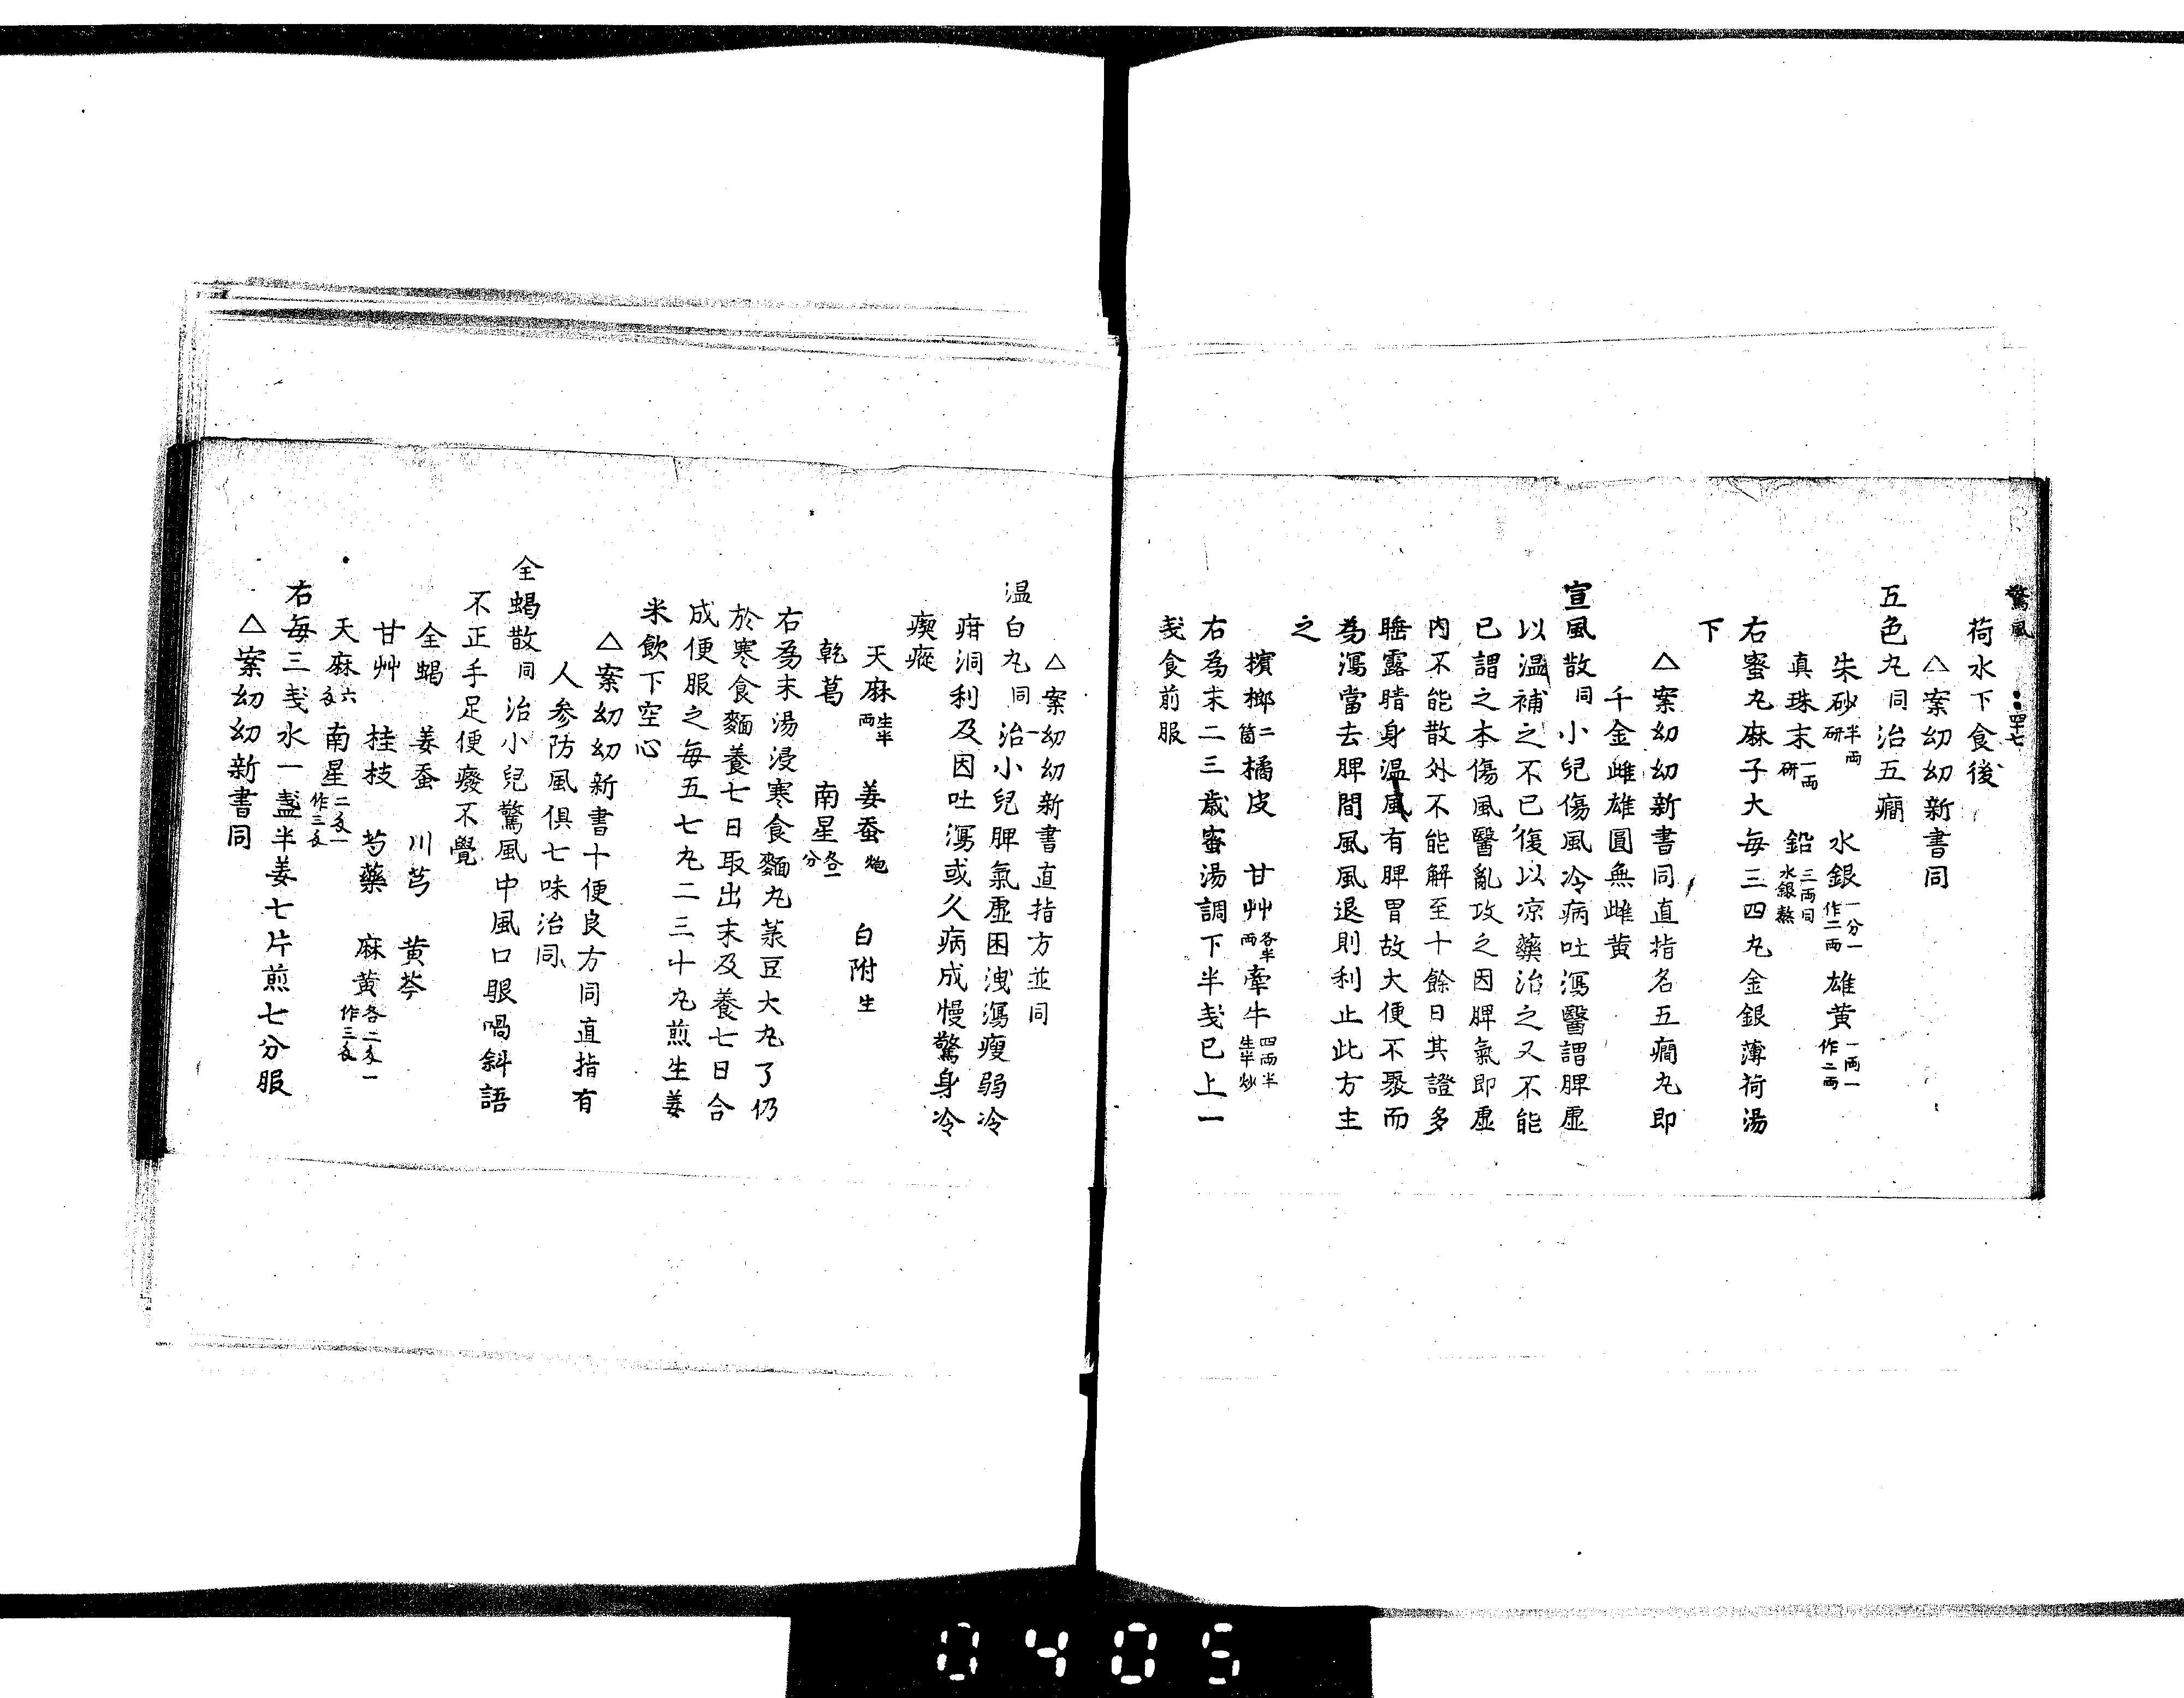 驚風 四十七
荷水下食後
△案幼幼新書同
五色丸同治五癇
朱砂半両研 水銀一分一作二両 雄黄一両一作二両
真珠末一両研 鉛三両同水銀熬
右蜜丸麻子大毎三四丸金銀薄荷湯
下
△案幼幼新書同直指名五癇丸即
千金雌雄圓無雌黄
宣風散同小兒傷風冷病吐瀉醫謂脾虛
以温補之不已復以凉藥治之又不能
已謂之本傷風醫亂攻之因脾氣即虛
内不能散外不能解至十餘日其證多
睡露睛身温風有脾胃故大便不聚而
為瀉當去脾間風風退則利止此方主
之
檳榔二箇 橘皮 甘艸各半両 牽牛四両半生半炒
右為末二三歳蜜湯調下半戔已上一
戔食前服
△案幼幼新書直指方並同
温白丸同一治小兒脾氣虛困洩瀉瘦弱冷
疳洞利及因吐瀉或久病成慢驚身冷
瘈瘲
天麻生半両 姜蚕炮 白附生
乾葛 南星各一分
右為末湯浸寒食麵丸菉豆大丸了仍
於寒食麵養七日取出末及養七日合
成便服之毎五七丸二三十丸煎生姜
米飲下空心
△案幼幼新書十便良方同直指有
人参防風俱七味治同
全蝎散同治小兒驚風中風口眼喎斜語
不正手足便癈不覺
全蝎 姜蚕 川芎 黄芩
甘艸 桂枝 芍藥 麻黄各二戔一作三戔
天麻六戔 南星二戔一作三戔
右毎三戔水一盞半姜七片煎七分服
△案幼幼新書同
0405